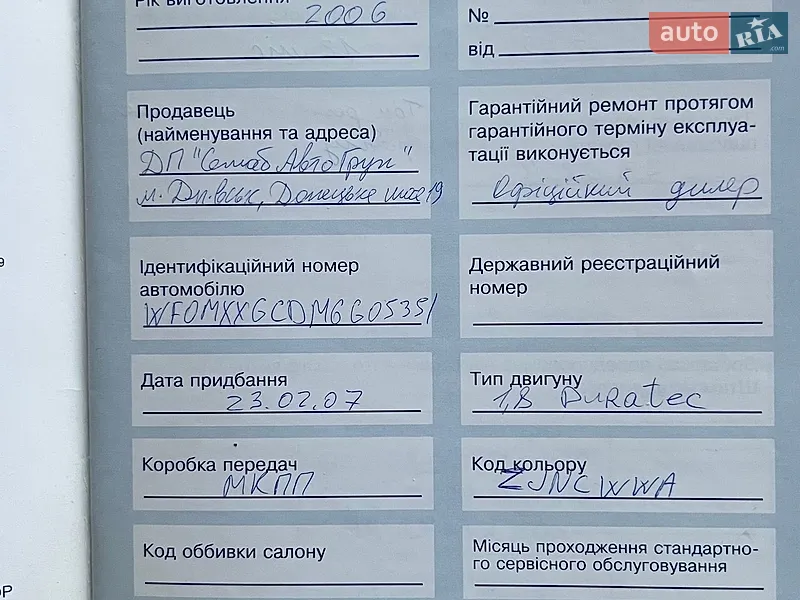 Рік виготовлення 2006
№
від
auto RIA .com
Продавець
(найменування та адреса)
ДП "Самаб Авто Груп"
м. Дн.вськ, Донецьке шосе 19
Гарантійний ремонт протягом
гарантійного терміну експлуа-
тації виконується
Офіційний дилер
Ідентифікаційний номер
автомобілю
WF0MXXGCDM6G05351
Державний реєстраційний
номер
Дата придбання
23.02.07
Тип двигуну
1,8 Duratec
Коробка передач
МКПП
Код кольору
ZJNCWWA
Код оббивки салону
Місяць проходження стандартно-
го сервісного обслуговування